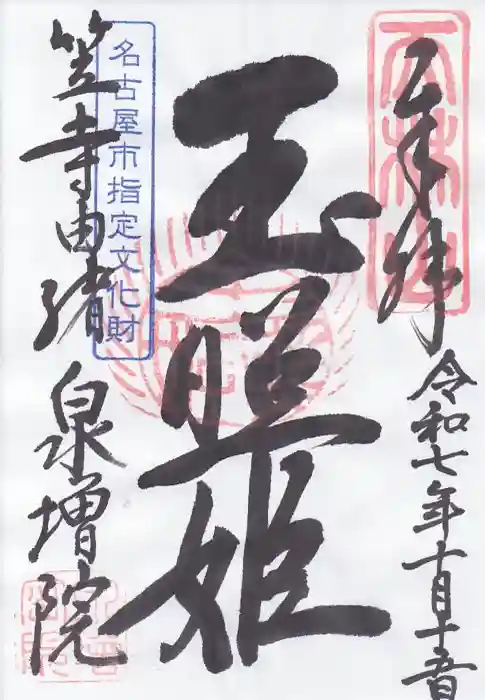 奉拝
令和七年十月十五日
玉照姫
名古屋市指定文化財
笠寺由緒
泉増院